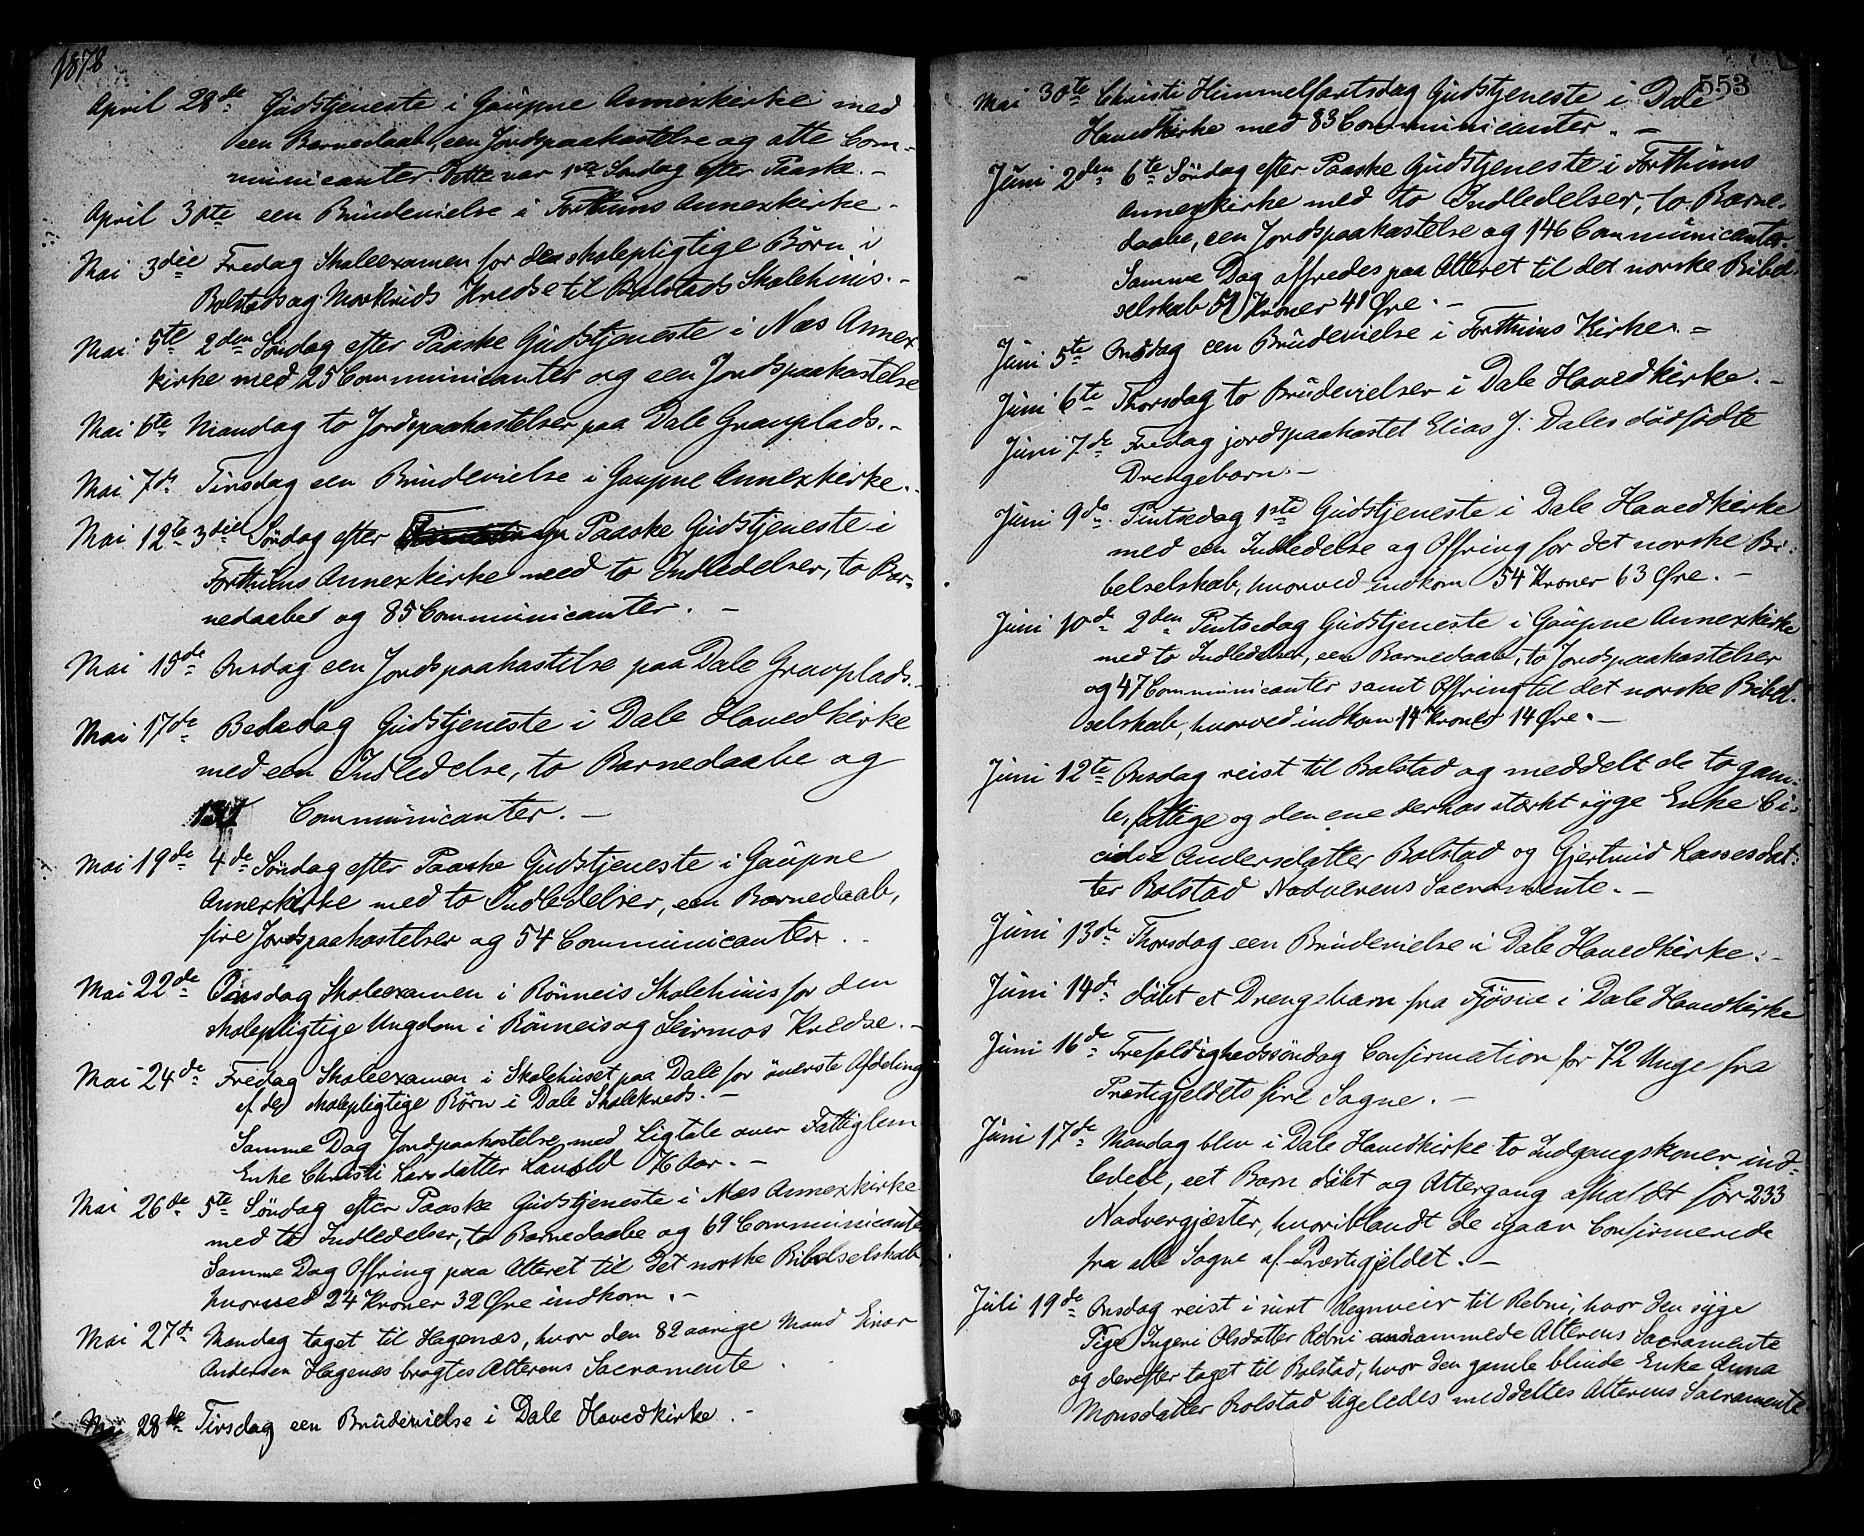 1878
April 28de Gudstjeneste i Gaupne Annexkirke med
een Barnedaab, een Jordspaakastelse og otte Com-
municanter. Dette var 1ste Søndag efter Paaske. -
April 30te een Brudevielse i Forthuns Annexkirke -
Mai 3die Fredag Skoleexamen for den skolepligtige Børn i
Bolstads og Morkrids Kredse til Bolstads Skolehuus. -
Mai 5te 2den Søndag efter Paaske Gudstjeneste i Næs Annex
kirke med 25 Communicanter og een Jordspaakastelse
Mai 6te Mandag to Jordspaakastelser paa Dale Gravplads. -
Mai 7de Tirsdag een Brudevielse i Gaupne Annexkirke. -
Mai 12te 3die Søndag efter Paaske Gudstjeneste i
Forthuns Annexkirke med to Indledelser, to Bar-
nedaabe og 85 Communicanter. -
Mai 15de Onsdag een Jordspaakastelse paa Dale Gravplads. -
Mai 17de Bededag Gudstjeneste i Dale Hovedkirke
med een Indledelse, to Barnedaabe og
Communicanter. -
Mai 19de 4de Søndag efter Paaske Gudstjeneste i Gaupne
Annexkirke med to Indledelser, een Barnedaab,
fire Jordspaakastelser og 54 Communicanter. .
Mai 22de Onsdag Skoleexamen i Rønneis Skolehuus for den
skolepligtige Ungdom i Rønneis og Leirmos Kredse. -
Mai 24de Fredag Skoleexamen i Skolehuset paa Dale for øverste Afdeling
af de skolepligtige Børn i Dale Skolekreds. -
Samme Dag Jordpaakastelse med Ligtale over Fattiglem
Enke Christi Larsdatter 76 Aar. -
Mai 26de 5te Søndag efter Paaske Gudstjeneste i Næs Annexkirke
med to Indledelser, to Barnedaabe og 69 Communicanter
Samme Dag Offring paa Alteret til det norske Bibelselskab
hvorved 24 Kroner 32 Øre indkom. -
Mai 27de Mandag taget til Hagenæs, hvor den 82 aarige Mand Einar
Andersen Hagenæs bragtes Alterens Sacramente .
Mai 28de Tirsdag een Brudevielse i Dale Hovedkirke. -
553
Mai 30te Christi Himmelfartsdag Gudstjeneste i Dale
Hovedkirke med 83 Communicanter. -
Juni 2den 6te Søndag efter Paaske Gudstjeneste i Forthuns
Annexkirke med to Indledelser, to Barne-
daabe, een Jordspaakastelse og 146 Communicanter.
Samme Dag offredes paa Alteret til det norske Bibel-
selskab 51 Kroner 41 Øre. -
Juni 5te Onsdag een Brudevielse i Forthuns Kirke. -
Juni 6te Thorsdag to Brudevielser i Dale Hovedkirke. -
Juni 7de Fredag jordspaakastet Elias J. Dales dødfødte
Drengebarn. -
Juni 9de Pintsedag 1ste Gudstjeneste i Dale Hovedkirke
med een Indledelse og Offring for det norske Bi-
belselskab, hvorved indkom 54 Kroner 63 Øre. -
Juni 10de 2den Pintsedag Gudstjeneste i Gaupne Annexkirke
med to Indledelser, een Barnedaab, to Jordspaakastelser
og 47 Communicanter samt Offring til det norske Bibel-
selskab, hvorved indkom 14 Kroner 14 Øre. -
Juni 12te Onsdag reist til Bolstad og meddelt de to gam-
le, fattige og den ene dernæst stærkt syge Enke Ci-
cilie Andersdatter Bolstad og Gjertrud Lassesdat-
ter Bolstad Nadverens Sacramente. -
Juni 13de Thorsdag een Brudevielse i Dale Hovedkirke. -
Juni 14de døbt et Drengebarn fra Fjøsne i Dale Hovedkirke
Juni 16de Trefoldighedssøndag Confirmation for 72 Unge fra
Præstegjeldets fire Sogne. -
Juni 17de Mandag blev i Dale Hovedkirke to Indgangskoner ind-
ledede, eet Barn døbt og Altergang afholdt for 233
Nadvergjæster, hvoriblandt de igaar Confirmerede
fra alle Sogne af Præstegjeldet. -
Juli 19de Onsdag reist i surt Regnveir til Rebni, hvor den syge
Pige Ingeri Olsdatter Rebni annammede Alterens Sacramente
og derefter taget til Bolstad, hvor den gamle blinde Enke Anna
Monsdatter Bolstad ligeledes meddeltes Alterens Sacramente